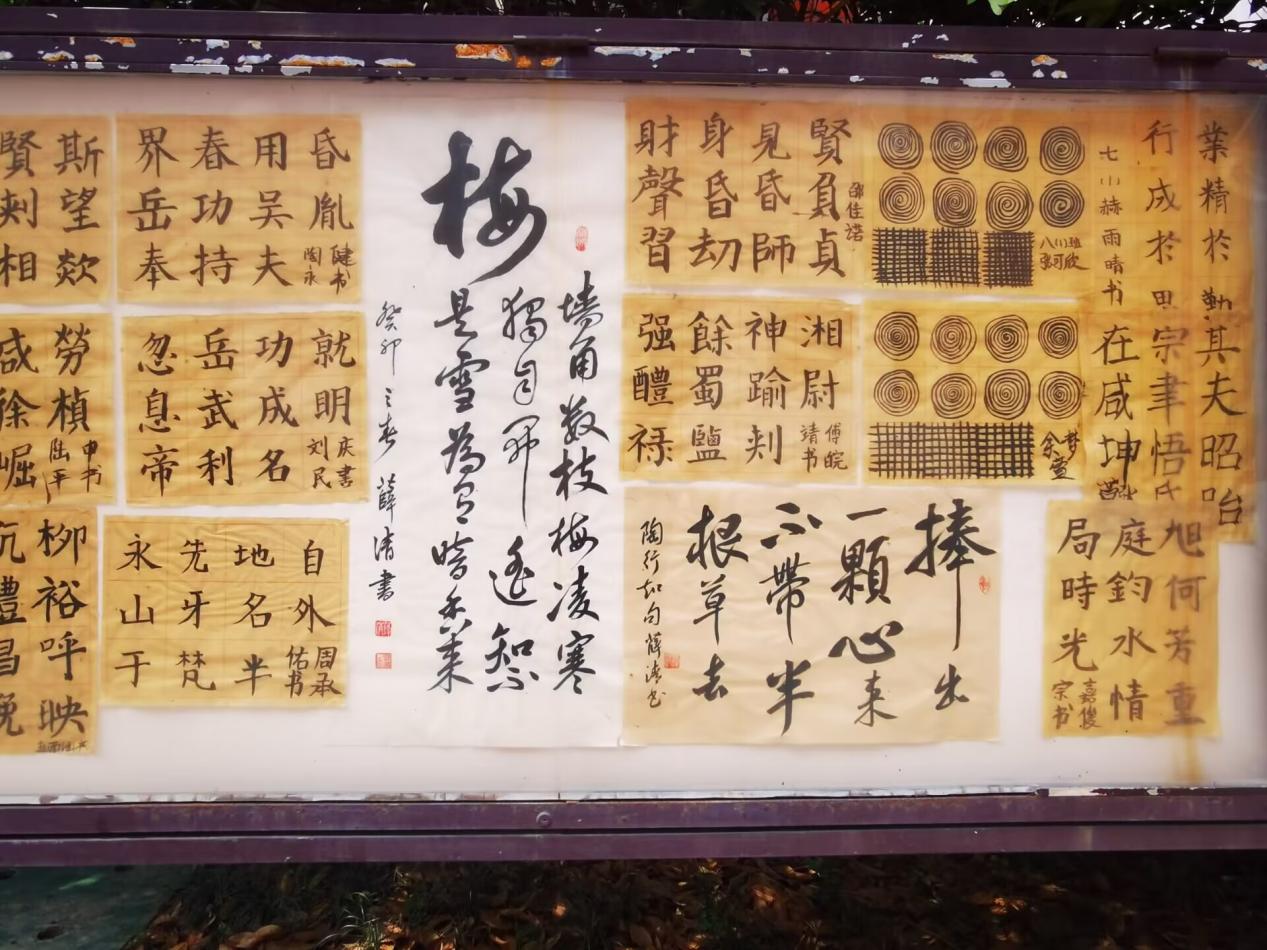 業精於勤
行成於思
七小赫雨晴书
其夫昭哈
宗聿悟氏
在咸坤
旭何芳重
庭鈞水情
局時光
嘉俊
宗书
八川班
张可欣
梦
余萱
賢負貞
見昏師
身昏劫
財聲習
邵佳诺
湘尉
神踰刾
餘蜀鹽
强醴禄
傅皖
靖书
捧出
一顆心来
不帶半
根草去
陶行知句薛清书
梅
墙角数枝梅凌寒
獨自開遥知不
是雪為有暗香来
癸卯之春薛清書
昏胤
用吴夫
春功持
界岳奉
健书
陶永
就明
功成名
岳武利
忽息帝
庆書
刘民
自外
地名半
先牙梵
永山于
周承
佑书
斯望欻
賢刾相
勞楨
咸徐崛
申书
陆平
柳裕呼映
沉禮昌晚